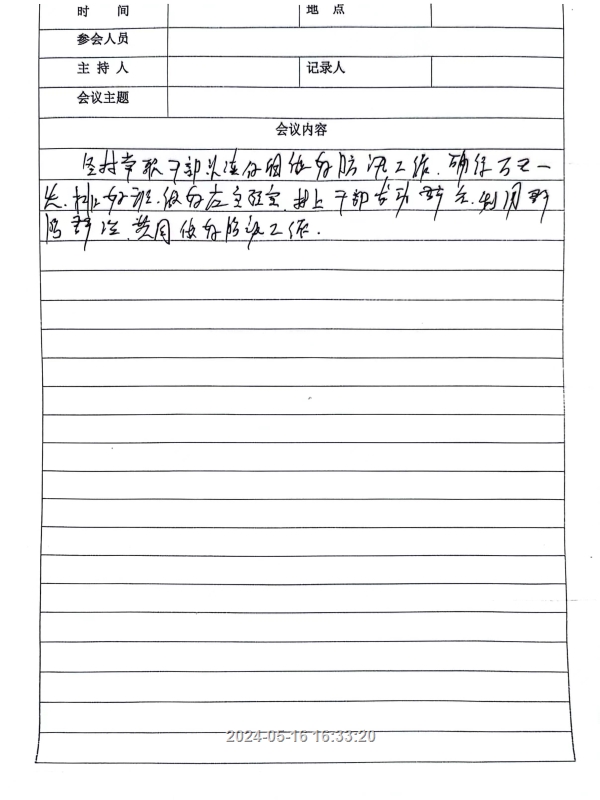 时 间 地 点
参会人员
主 持 人 记录人
会议主题
会议内容
村常职干部 做好防汛工作，确保万无一
失，排好班，做好 村上干部 群众，利用群
防群治，共同做好防汛工作。
2024-05-16 16:33:20